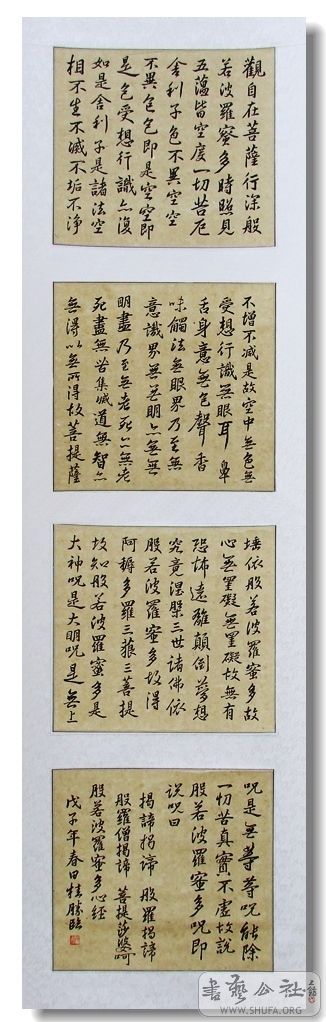 觀自在菩薩行深般
若波羅蜜多時照見
五蕴皆空度一切苦厄
舍利子色不異空空
不異色色即是空空即
是色受想行識亦復
如是舍利子是諸法空
相不生不滅不垢不淨
不增不减是故空中無色無
受想行識無眼耳鼻
舌身意無色聲香
味觸法無眼界乃至無
意識界無無明亦無無
明盡乃至無老死亦無老
死盡無苦集滅道無智亦
無得以無所得故菩提薩
埵依般若波羅蜜多故
心無罣礙無罣礙故無有
恐怖遠離顛倒夢想
究竟涅槃三世諸佛依
般若波羅蜜多故得
阿耨多羅三藐三菩提
故知般若波羅蜜多是
大神咒是大明咒是無上
咒是無等等咒能除
一切苦真實不虛故說
般若波羅蜜多咒即
說咒曰
揭諦揭諦 般羅揭諦
般羅僧揭諦 菩提莎婆訶
般若波羅蜜多心經
戊子年春日桂勝臨
書藝公社
WWW.SHUFA.ORG